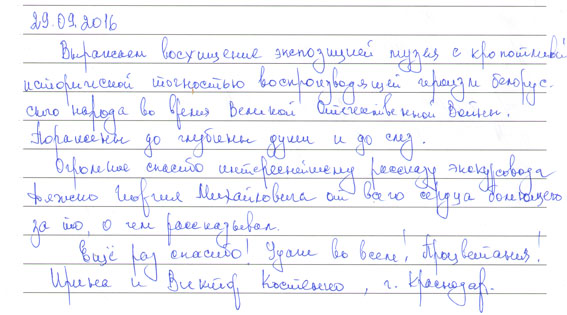 29.09.2016
Выражаем восхищение экспозицией музея с кропотливой
исторической точностью воспроизводящей героизм белорус-
ского народа во время Великой Отечественной Войны.
Поражены до глубины души и до слёз.
Огромное спасибо интереснейшему рассказу экскурсовода
Михайловича от всего сердца болеющего
за то, о чем рассказывал.
Ещё раз спасибо! Удачи во всем! Процветания!
Ирина и Виктор Костенко, г. Краснодар.